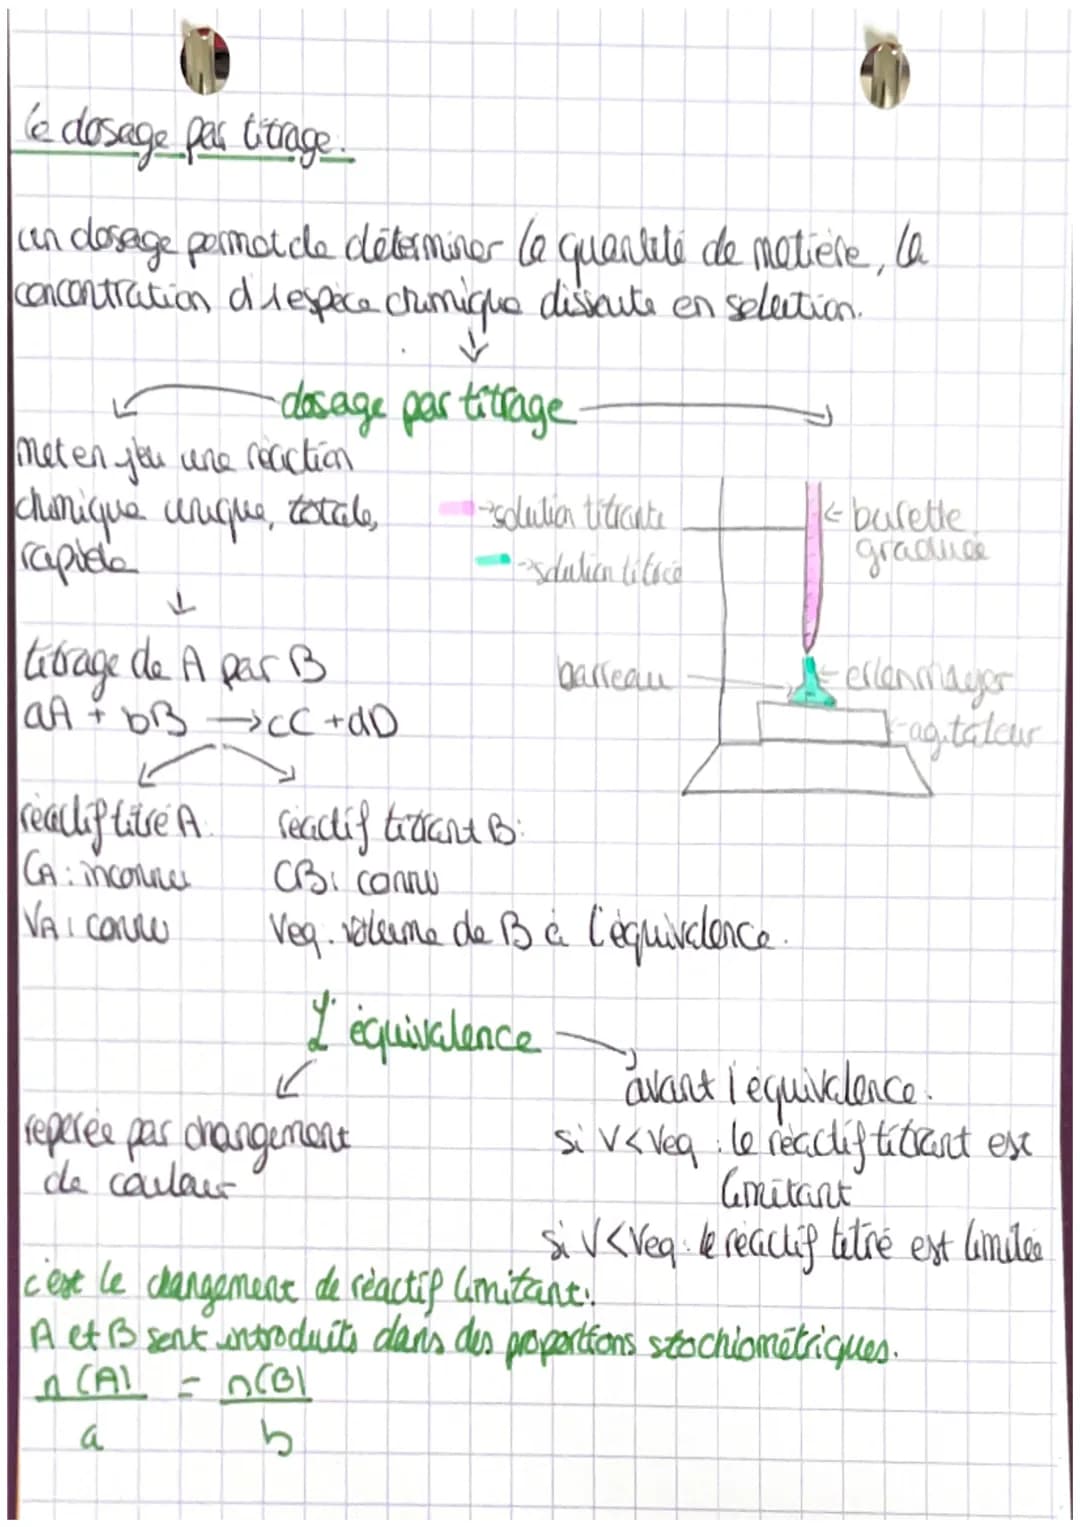 le dosage par titrage.
un dosage permet de déterminer la quantité de matière, la
concentration d'1 espèce chimique dissoute en solution.
dosage par titrage
met en jeu une réaction
chimique unique, totale,
rapide
solution titrante
solution titrée
burette
graduée
barreau
erlenmayer
agitateur
titrage de A par B
aA + bB → cC + dD
réactif titré A:
CA: inconnu
VA: connu
réactif titrant B:
CB: connu
Veq: volume de B à l'équivalence.
L'équivalence
repérée par changement
de couleur
avant l'équivalence.
si V<Veq: le réactif titrant est
limitant
si V<Veq: le réactif titré est limitée
c'est le changement de réactif limitant:
A et B sont introduits dans des proportions stochiométriques.
n(A) = n(B)
a b